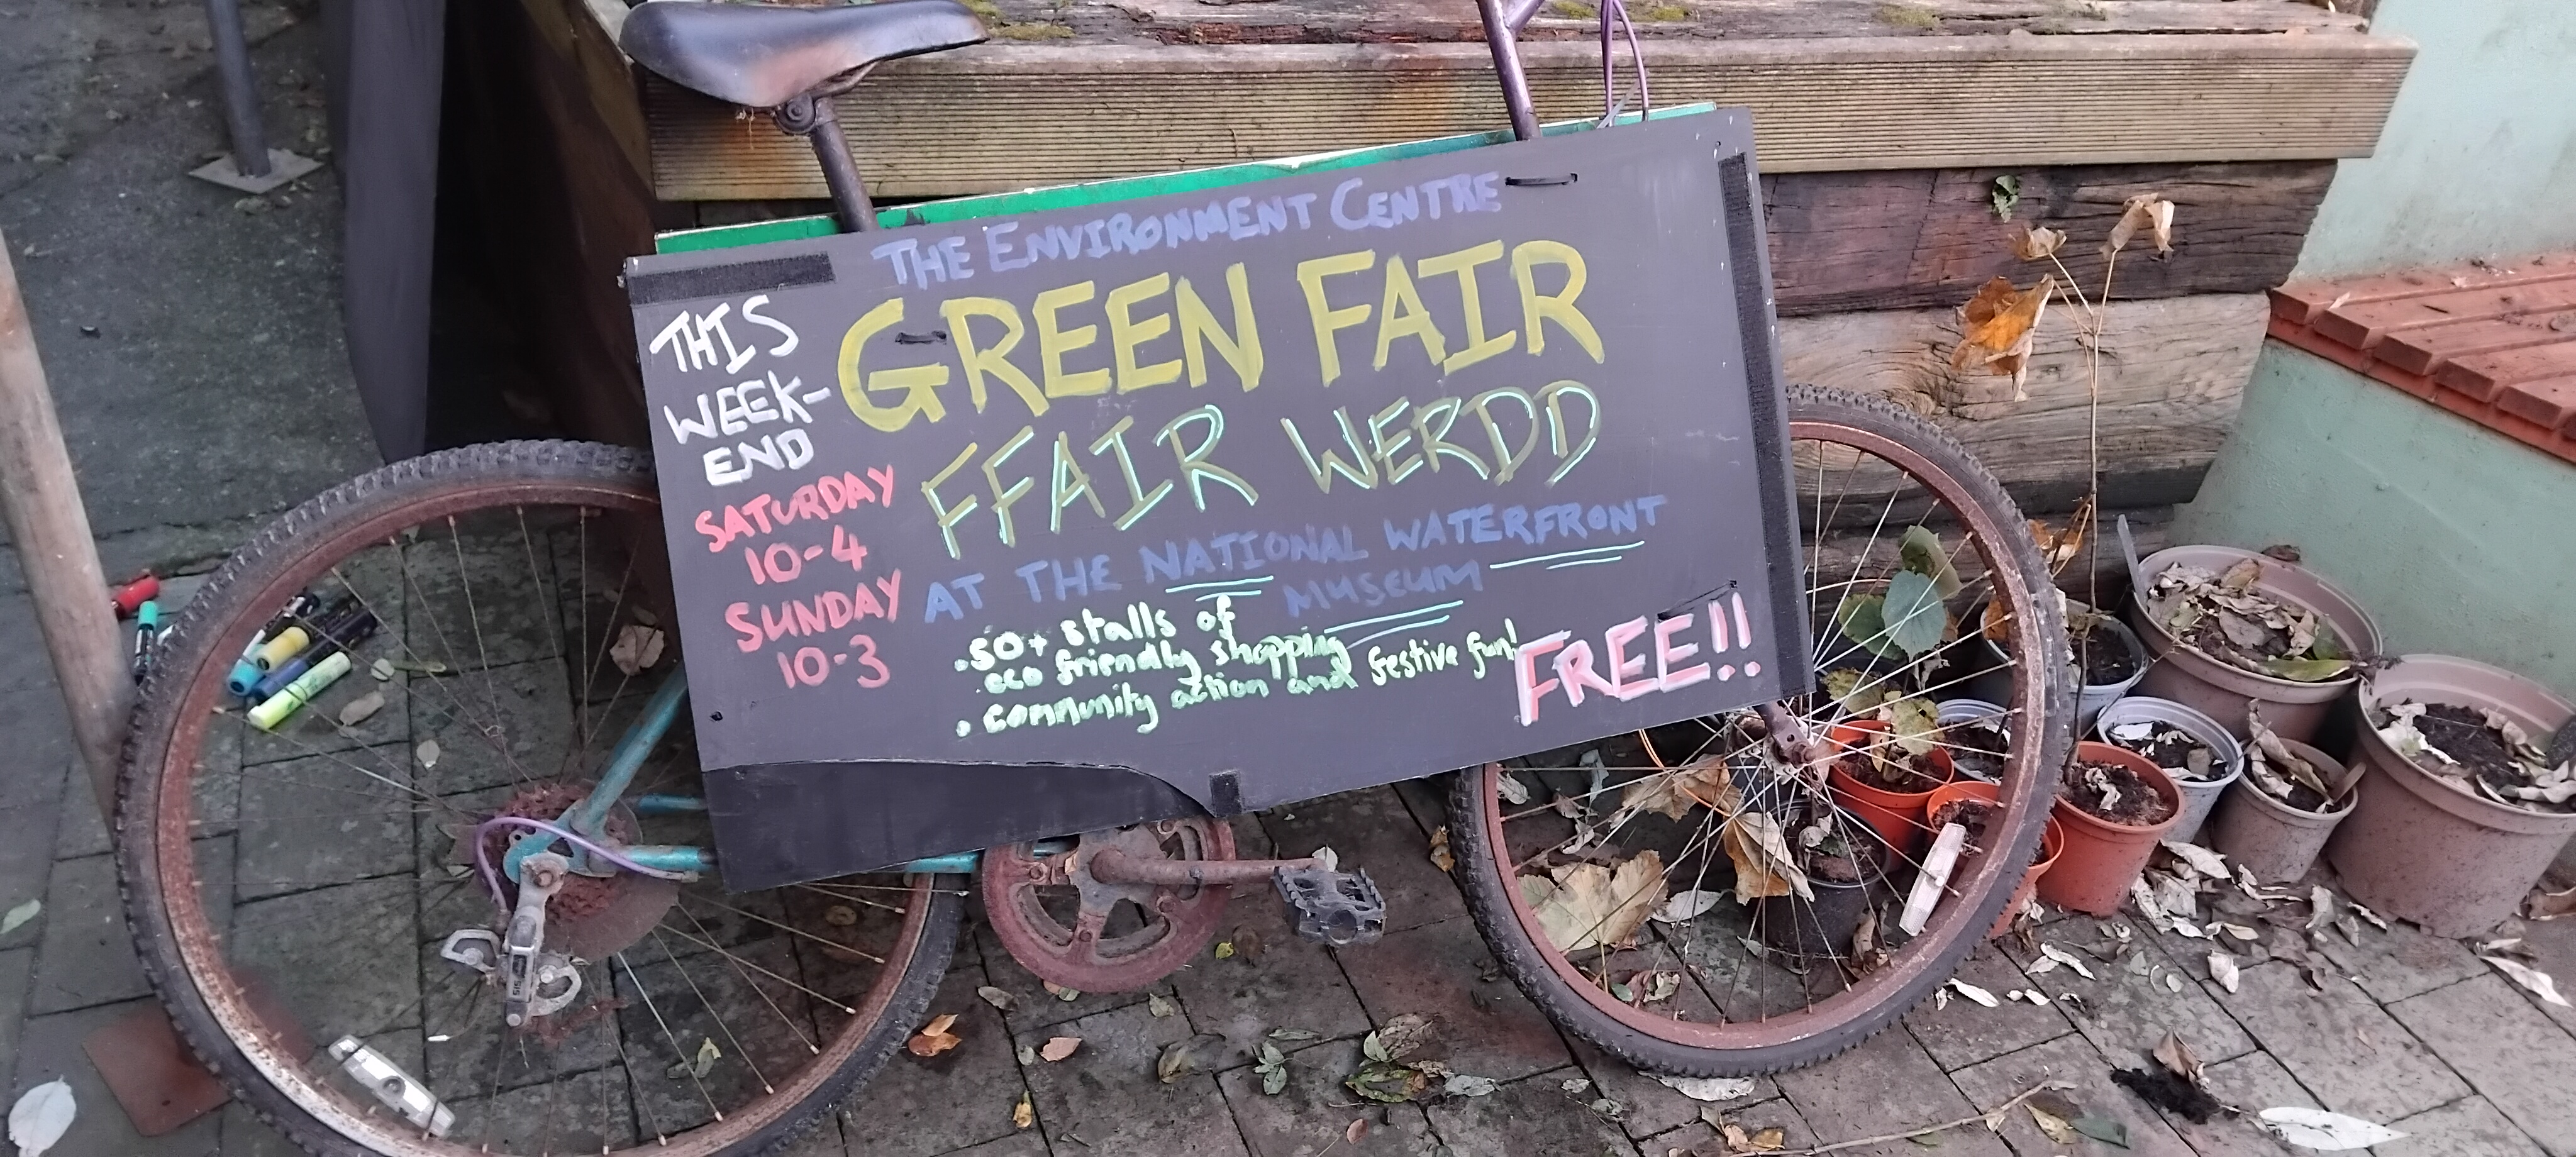 THE ENVIRONMENT CENTRE
THIS
WEEK-
END
GREEN FAIR
FFAIR WERDD
SATURDAY
10-4
SUNDAY
10-3
AT THE NATIONAL WATERFRONT
MUSEUM
.50+ stalls of
.eco friendly shopping
. community action and festive fun!
FREE!!
SIS